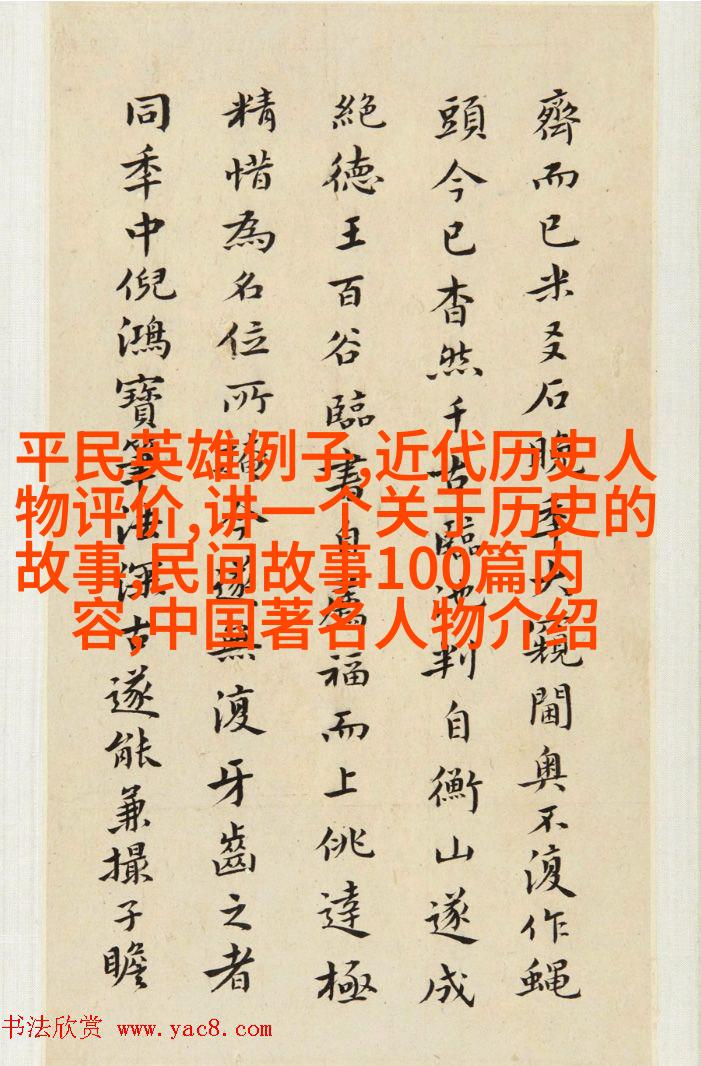 齊而已米友石晚季大窺閫奥不復作蝇
頭今已杳然千古臨池判自衡山遂成
絶德王百谷臨書自福而上佻達極
精惜為名位所今遂無復牙齒之者
同季中倪鴻寶筆法深古遂能兼撮子瞻
平民英雄例子,近代历史人
物评价,讲一个关于历史的
故事,民间故事100篇内
容,中国著名人物介绍
书法欣赏 www.yac8.com